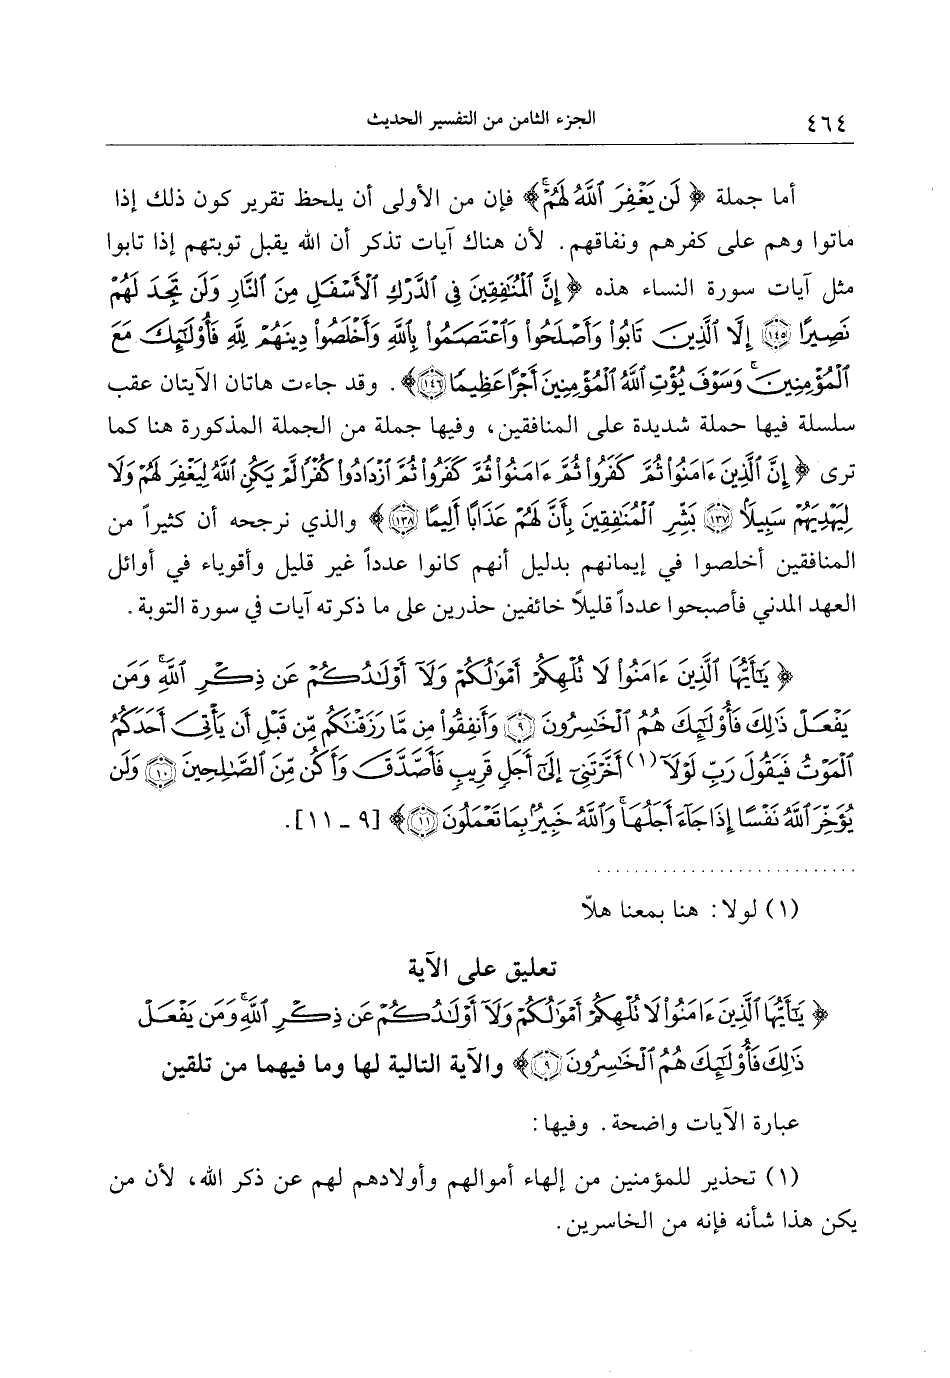 ٤٦٤ الجزء الثامن من التفسير الحديث
أما جملة ﴿ لَن يَغْفِرَ ٱللَّهُ لَهُمْۚ ﴾ فإن من الأولى أن يلحظ تقرير كون ذلك إذا
ماتوا وهم على كفرهم ونفاقهم. لأن هناك آيات تذكر أن الله يقبل توبتهم إذا تابوا
مثل آيات سورة النساء هذه ﴿ إِنَّ ٱلْمُنَٰفِقِينَ فِى ٱلدَّرْكِ ٱلْأَسْفَلِ مِنَ ٱلنَّارِ وَلَن تَجِدَ لَهُمْ
نَصِيرًا ١٤٥ إِلَّا ٱلَّذِينَ تَابُوا۟ وَأَصْلَحُوا۟ وَٱعْتَصَمُوا۟ بِٱللَّهِ وَأَخْلَصُوا۟ دِينَهُمْ لِلَّهِ فَأُو۟لَٰٓئِكَ مَعَ
ٱلْمُؤْمِنِينَۖ وَسَوْفَ يُؤْتِ ٱللَّهُ ٱلْمُؤْمِنِينَ أَجْرًا عَظِيمًا ١٤٦ ﴾. وقد جاءت هاتان الآيتان عقب
سلسلة فيها حملة شديدة على المنافقين، وفيها جملة من الجملة المذكورة هنا كما
ترى ﴿ إِنَّ ٱلَّذِينَ ءَامَنُوا۟ ثُمَّ كَفَرُوا۟ ثُمَّ ءَامَنُوا۟ ثُمَّ كَفَرُوا۟ ثُمَّ ٱزْدَادُوا۟ كُفْرًا لَّمْ يَكُنِ ٱللَّهُ لِيَغْفِرَ لَهُمْ وَلَا
لِيَهْدِيَهُمْ سَبِيلًۢا ١٣٧ بَشِّرِ ٱلْمُنَٰفِقِينَ بِأَنَّ لَهُمْ عَذَابًا أَلِيمًا ١٣٨ ﴾ والذي نرجحه أن كثيراً من
المنافقين أخلصوا في إيمانهم بدليل أنهم كانوا عدداً غير قليل وأقوياء في أوائل
العهد المدني فأصبحوا عدداً قليلاً خائفين حذرين على ما ذكرته آيات في سورة التوبة.
﴿ يَٰٓأَيُّهَا ٱلَّذِينَ ءَامَنُوا۟ لَا تُلْهِكُمْ أَمْوَٰلُكُمْ وَلَآ أَوْلَٰدُكُمْ عَن ذِكْرِ ٱللَّهِۚ وَمَن
يَفْعَلْ ذَٰلِكَ فَأُو۟لَٰٓئِكَ هُمُ ٱلْخَٰسِرُونَ ٩ وَأَنفِقُوا۟ مِن مَّا رَزَقْنَٰكُم مِّن قَبْلِ أَن يَأْتِىَ أَحَدَكُمُ
ٱلْمَوْتُ فَيَقُولَ رَبِّ لَوْلَآ (١) أَخَّرْتَنِىٓ إِلَىٰٓ أَجَلٍ قَرِيبٍ فَأَصَّدَّقَ وَأَكُن مِّنَ ٱلصَّٰلِحِينَ ١٠ وَلَن
يُؤَخِّرَ ٱللَّهُ نَفْسًا إِذَا جَآءَ أَجَلُهَاۚ وَٱللَّهُ خَبِيرٌۢ بِمَا تَعْمَلُونَ ١١ ﴾ [٩ ـ ١١].
(١) لولا: هنا بمعنا هلاّ
تعليق على الآية
﴿ يَٰٓأَيُّهَا ٱلَّذِينَ ءَامَنُوا۟ لَا تُلْهِكُمْ أَمْوَٰلُكُمْ وَلَآ أَوْلَٰدُكُمْ عَن ذِكْرِ ٱللَّهِۚ وَمَن يَفْعَلْ
ذَٰلِكَ فَأُو۟لَٰٓئِكَ هُمُ ٱلْخَٰسِرُونَ ٩ ﴾ والآية التالية لها وما فيهما من تلقين
عبارة الآيات واضحة. وفيها:
(١) تحذير للمؤمنين من إلهاء أموالهم وأولادهم لهم عن ذكر الله، لأن من
يكن هذا شأنه فإنه من الخاسرين.